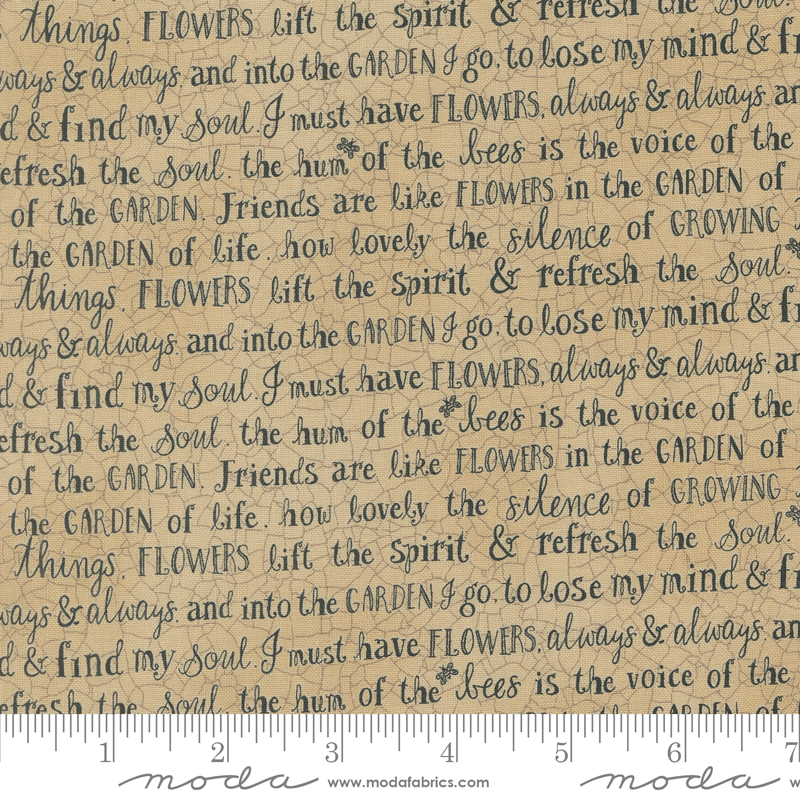 things. FLOWERS lift the spirit & refresh the soul.
ways & always. and into the GARDEN I go, to lose my mind &
& find my soul. I must have FLOWERS, always & always.
refresh the soul. the hum of the bees is the voice of the
of the GARDEN. Friends are like FLOWERS in the GARDEN of
the GARDEN of life. how lovely the silence of GROWING
things. FLOWERS lift the spirit & refresh the soul.
ways & always. and into the GARDEN I go, to lose my mind &
& find my soul. I must have FLOWERS, always & always.
efresh the soul. the hum of the bees is the voice of the
of the GARDEN. Friends are like FLOWERS in the GARDEN of
the GARDEN of life. how lovely the silence of GROWING
things. FLOWERS lift the spirit & refresh the soul.
ways & always. and into the GARDEN I go, to lose my mind &
& find my soul. I must have FLOWERS, always & always.
refresh the soul. the hum of the bees is the voice of the
1 2 3 4 5 6 7
moda www.modafabrics.com moda